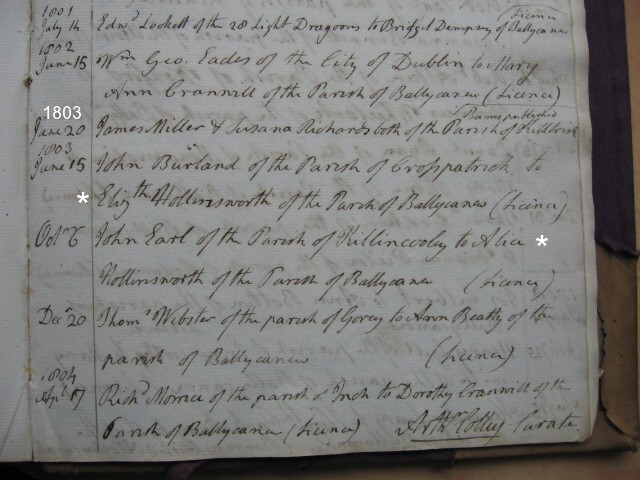 (Licence
1801
July 14 Edwd Lockett of the 28 Light Dragoons to Bridget Dempsey of Ballycanew
1802
June 15 Wm Geo. Eades of the City of Dublin to Mary
Ann Crannill of the Parish of Ballycanew (Licence)
1803
Banns published
June 20 James Miller & Susana Richards both of the Parish of
1803
June 15 John Burland of the Parish of Crosspatrick to
* Elizth Hollinsworth of the Parish of Ballycanew (Licence)
Octr 6 John Earl of the Parish of Killincooley to Alice *
Hollinsworth of the Parish of Ballycanew (Licence)
Decr 20 Thoms Webster of the parish of Gorey to Ann Beatty of the
parish of Ballycanew (Licence)
1804
Apl 17 Richd Morrice of the parish of Inch to Dorothy Crannill of the
Parish of Ballycanew (Licence) Arthr Colley Curate